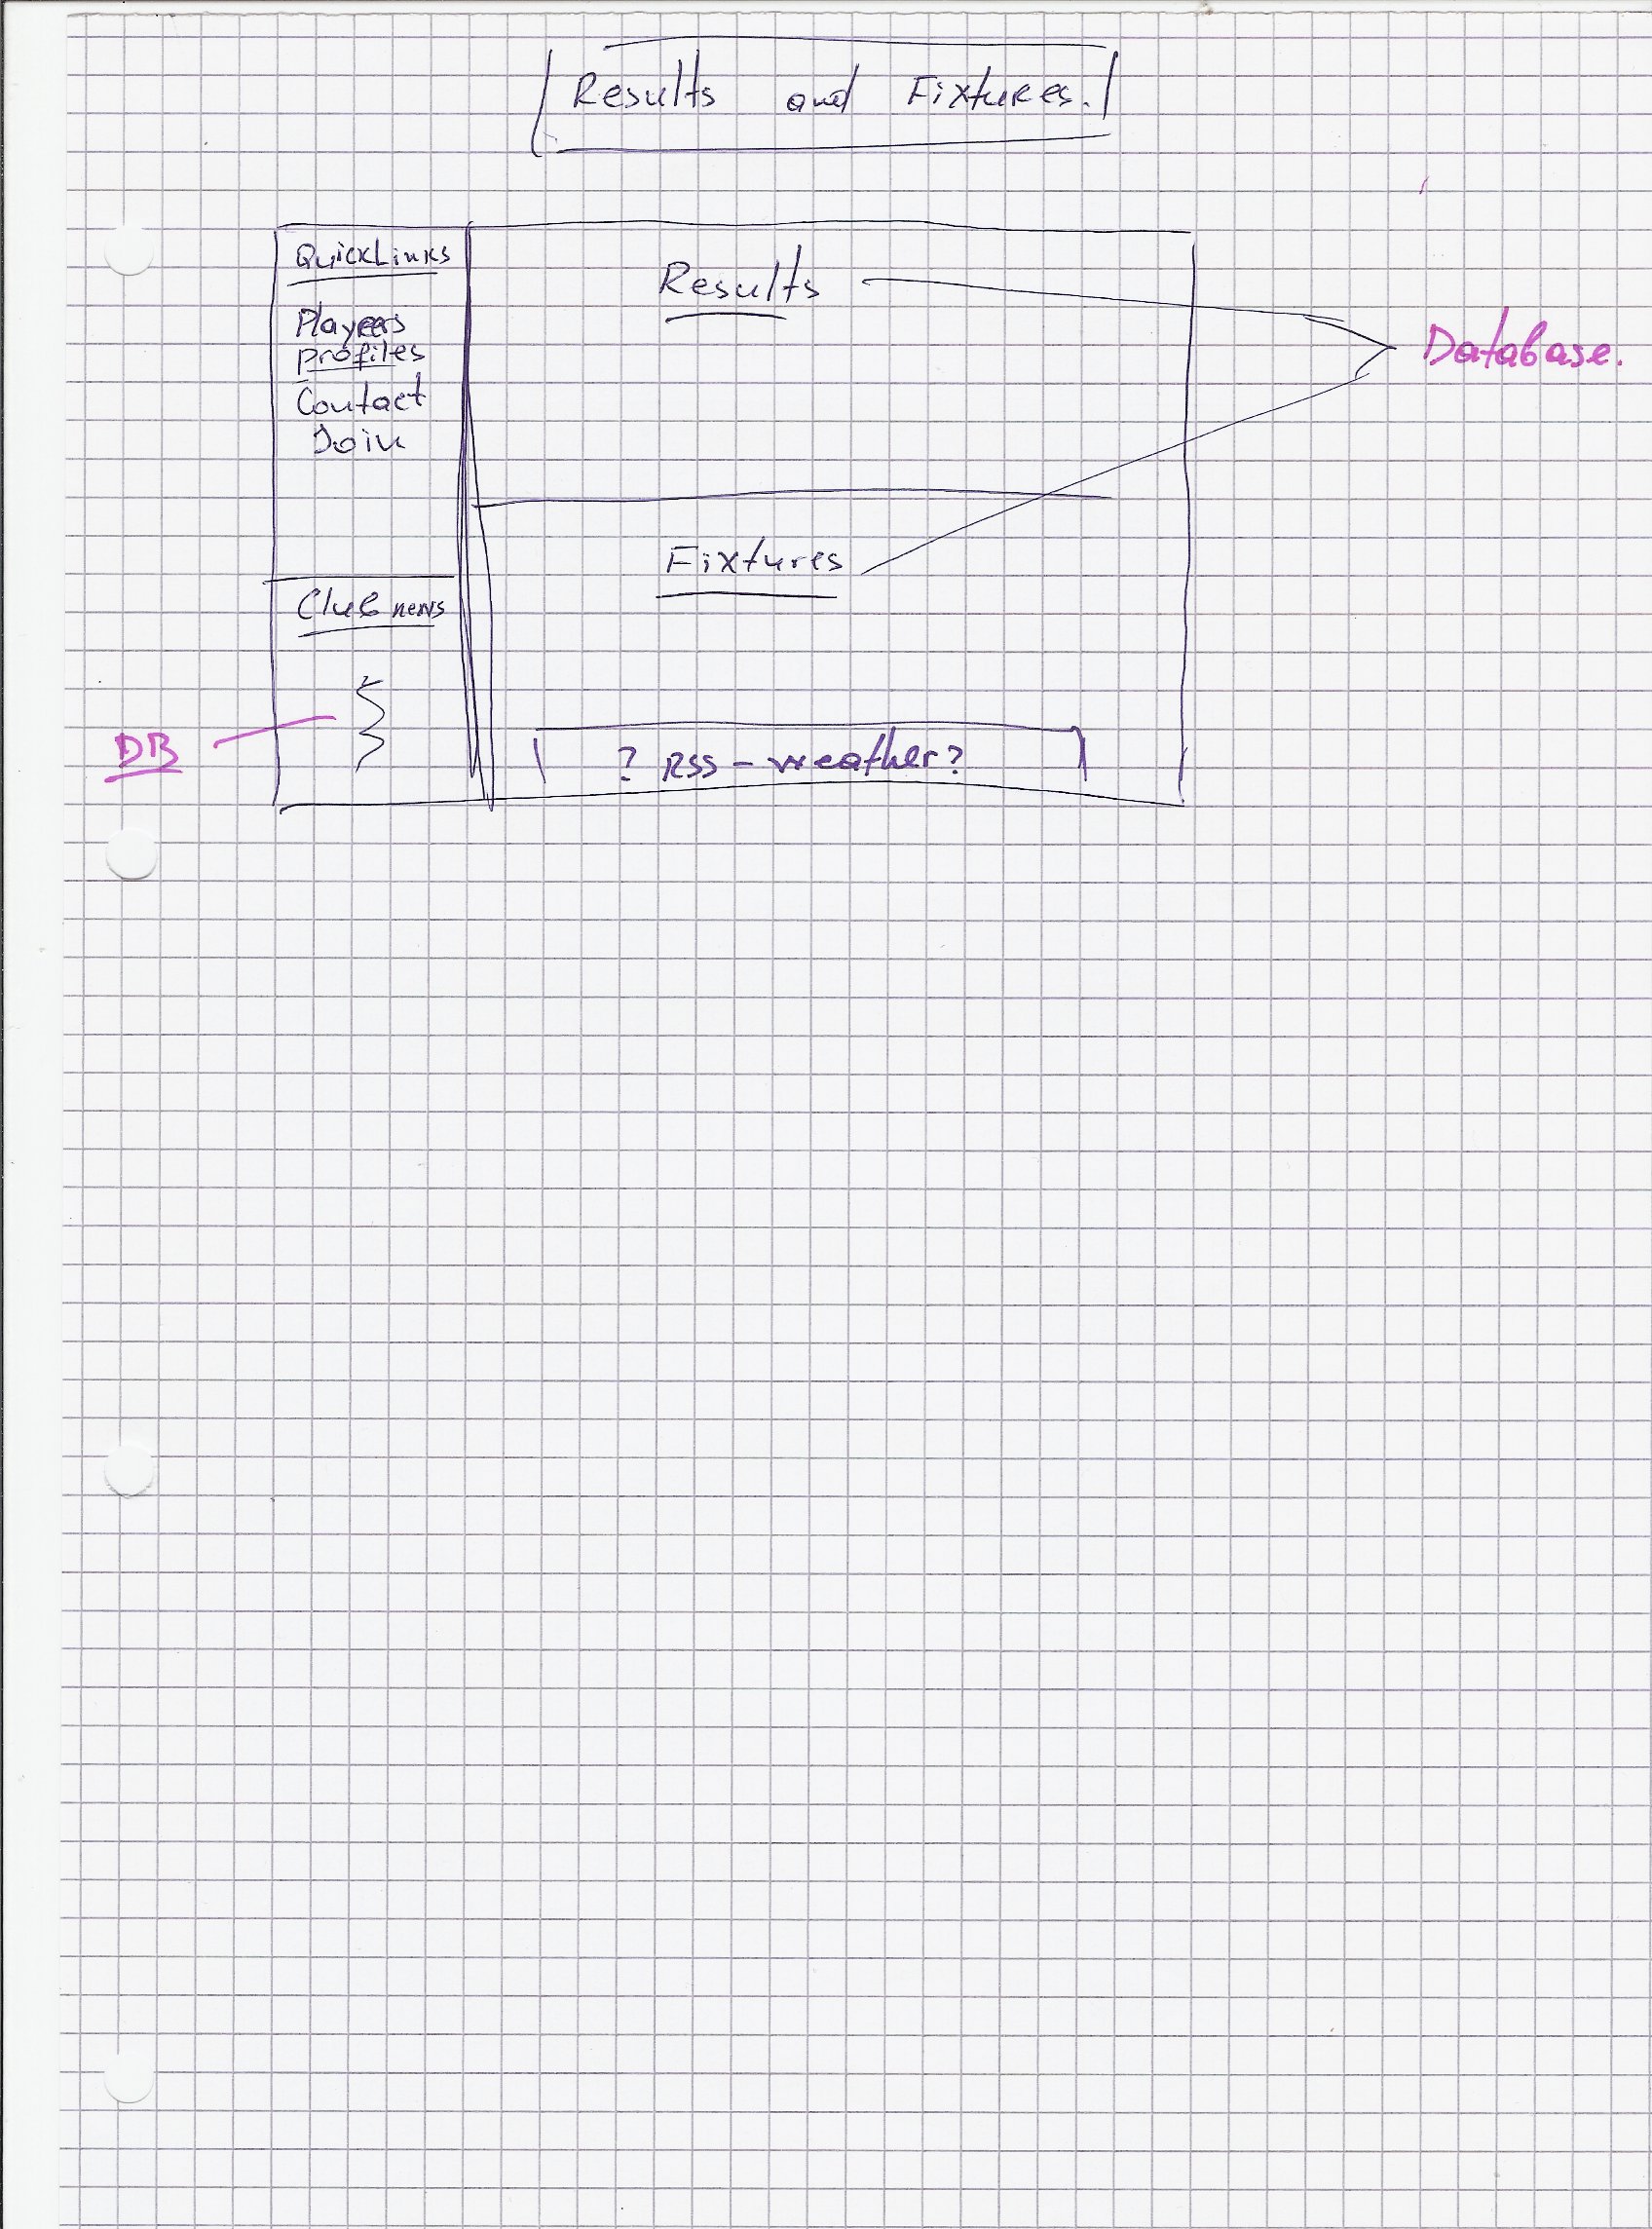 Results and Fixtures.
QuickLinks
Players
profiles
Contact
Join
Club news
DB
Results
Database.
Fixtures
? RSS - weather?